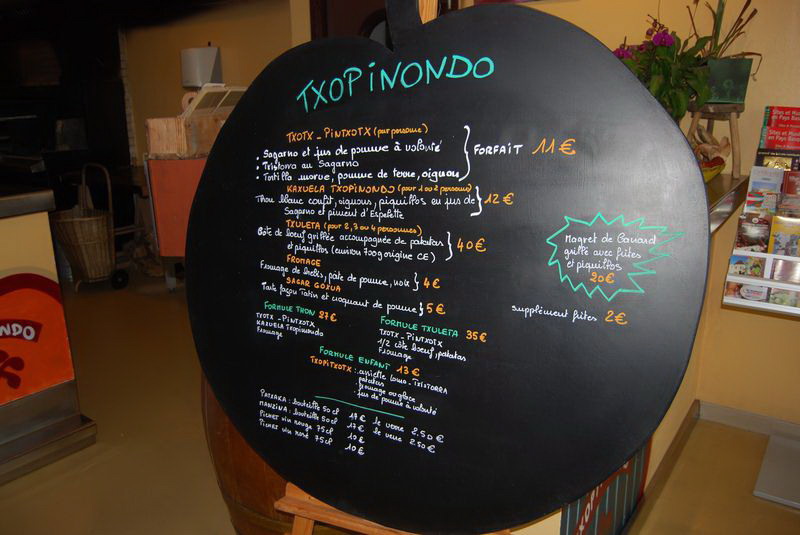 TXOPINONDO
TXOTX - PINTXOTX (par personne)
• Sagarno et jus de pomme à volonté
• Tristorra au Sagarno
• Tortilla morue, pomme de terre, oignon
FORFAIT 11€
KAXUELA TXOPINONDO (pour 1 ou 2 personnes)
Thon blanc confit, oignons, piquillos en jus de
Sagarno et piment d'Espelette
12€
TXULETA (pour 2, 3 ou 4 personnes)
Côte de boeuf grillée accompagnée de patatas
et piquillos (environ 700g origine CE)
40€
FROMAGE
Fromage de brebis, pâte de pomme, noix
4€
SAGAR GOXUA
Tarte façon Tatin et croquant de pomme
5€
FORMULE THON 27€
TXOTX - PINTXOTX
KAXUELA Txopinondo
Fromage
FORMULE TXULETA 35€
TXOTX - PINTXOTX
1/2 côte boeuf, patatas
Fromage
FORMULE ENFANT 13€
TXOPITXOTX : assiette Lomo - TXISTORRA
patatas
fromage ou glace
jus de pomme à volonté
PATXAKA : bouteille 50 cl 17€ le verre 2,50€
MANZINA : bouteille 50 cl 17€ le verre 2,50€
PICHET vin rouge 75cl 10€
PICHET vin rosé 75cl 10€
Magret de Canard
grillé avec frites
et piquillos
20€
supplément frites 2€
NONDO
Sites et Musées
en Pays Basque
Sites et Mu
en Pays Bas
TXOPIN